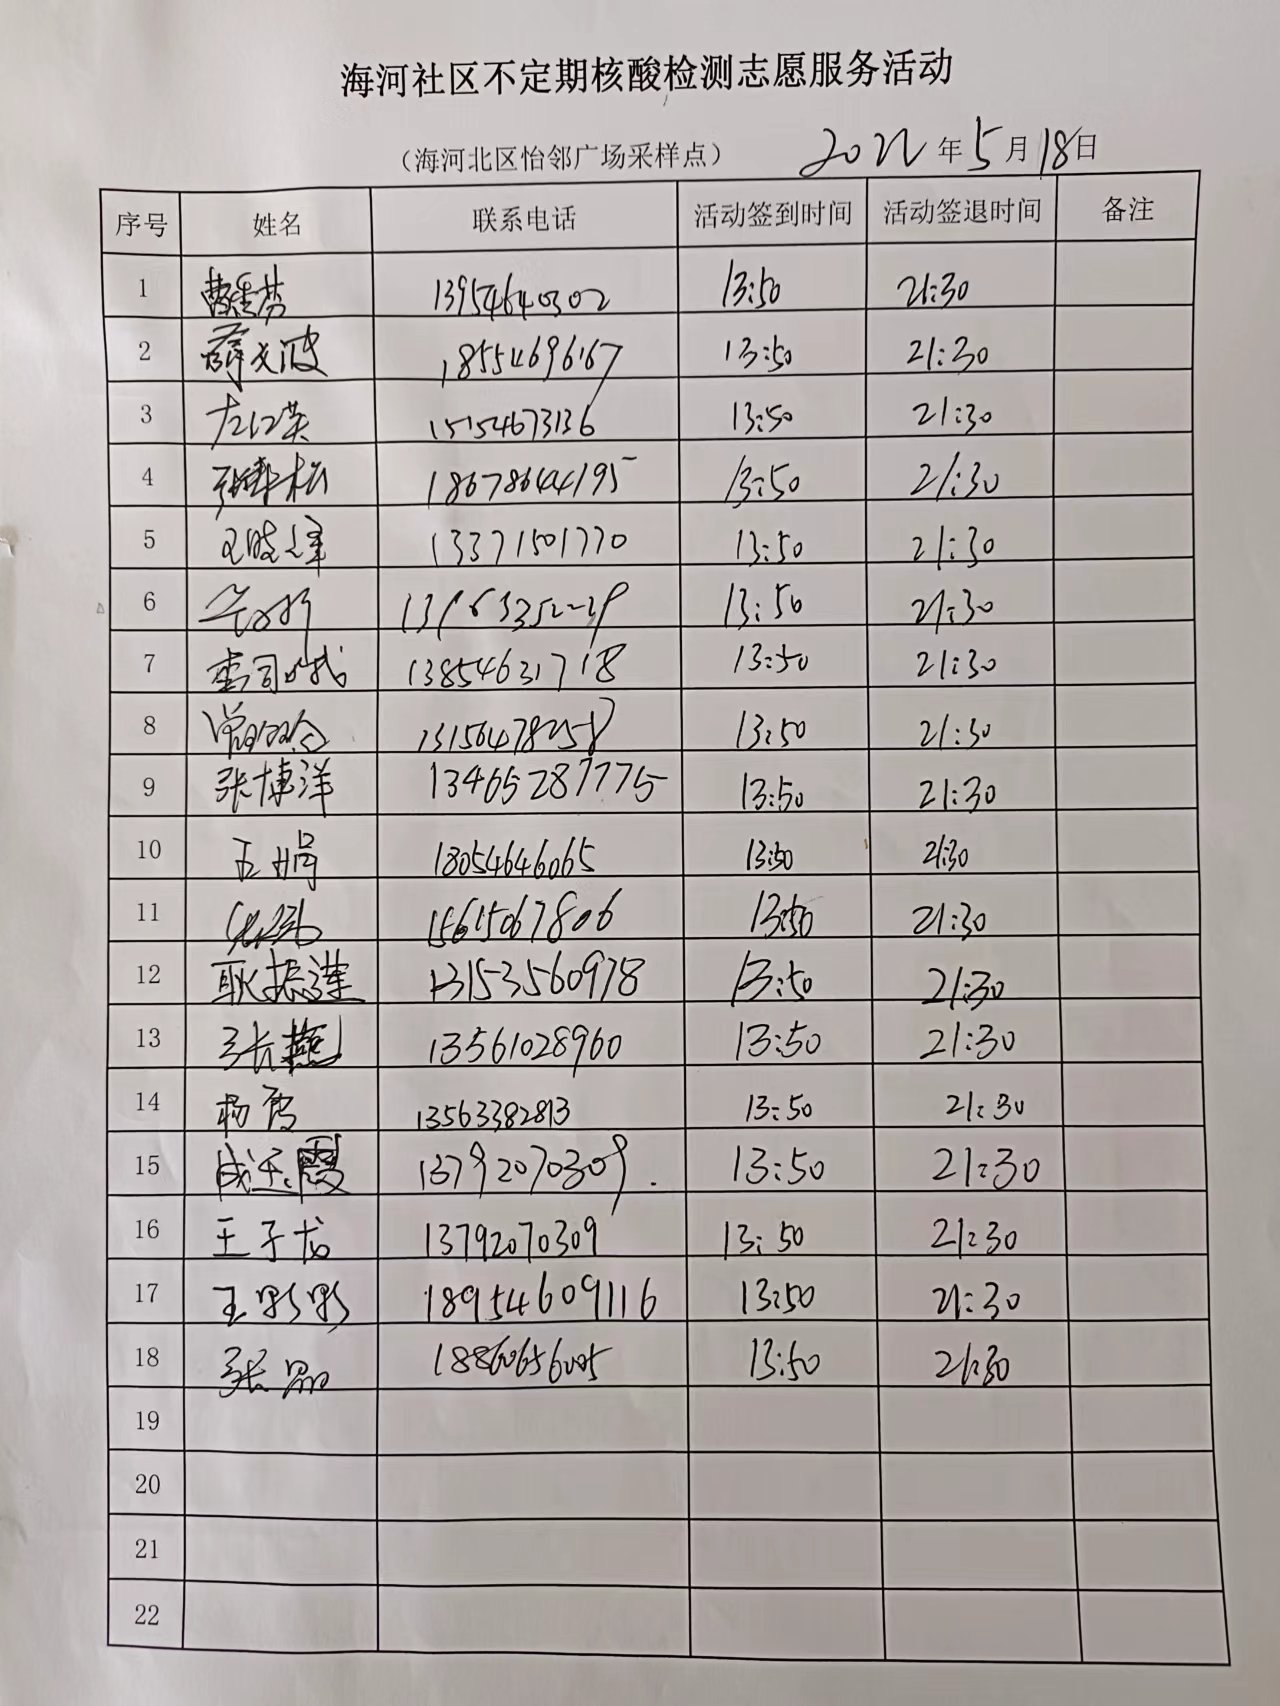 海河社区不定期核酸检测志愿服务活动
（海河北区怡邻广场采样点） 2022年5月18日
序号 姓名 联系电话 活动签到时间 活动签退时间 备注
1 13954640302 13:50 21:30
2 薛文波 18554696167 13:50 21:30
3 左红英 15154673136 13:50 21:30
4 18678644195 13:50 21:30
5 王晓军 13371501770 13:50 21:30
6 13:50 21:30
7 13854631718 13:50 21:30
8 13:50 21:30
9 张博洋 13465287775 13:50 21:30
10 王娟 18054646065 13:50 21:30
11 15615067806 13:50 21:30
12 耿振莲 13153560978 13:50 21:30
13 张艳 13561028960 13:50 21:30
14 杨雪 13563382813 13:50 21:30
15 成玉霞 13792070309. 13:50 21:30
16 王子龙 13792070309 13:50 21:30
17 王彩彩 18954609116 13:50 21:30
18 张 13:50 21:30
19
20
21
22